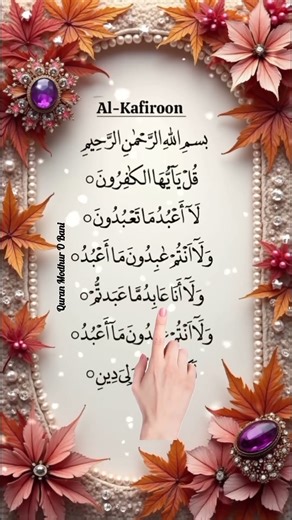 Al-Kafiroon
بسمِ اللهِ الرَّحْمٰنِ الرَّحِيمِ
قُلْ يَآيُّهَا الْكٰفِرُونَ
لَآ أَعْبُدُ مَا تَعْبُدُونَ
وَلَآ أَنْتُمْ عٰبِدُونَ مَآ أَعْبُدُ
وَلَآ أَنَا عَابِدٌ مَّا عَبَدتُّمْ
وَلَآ أَنْتُمْ عٰبِدُونَ مَآ أَعْبُدُ
وَلِيَ دِينِ
Quran Modhur O Bani